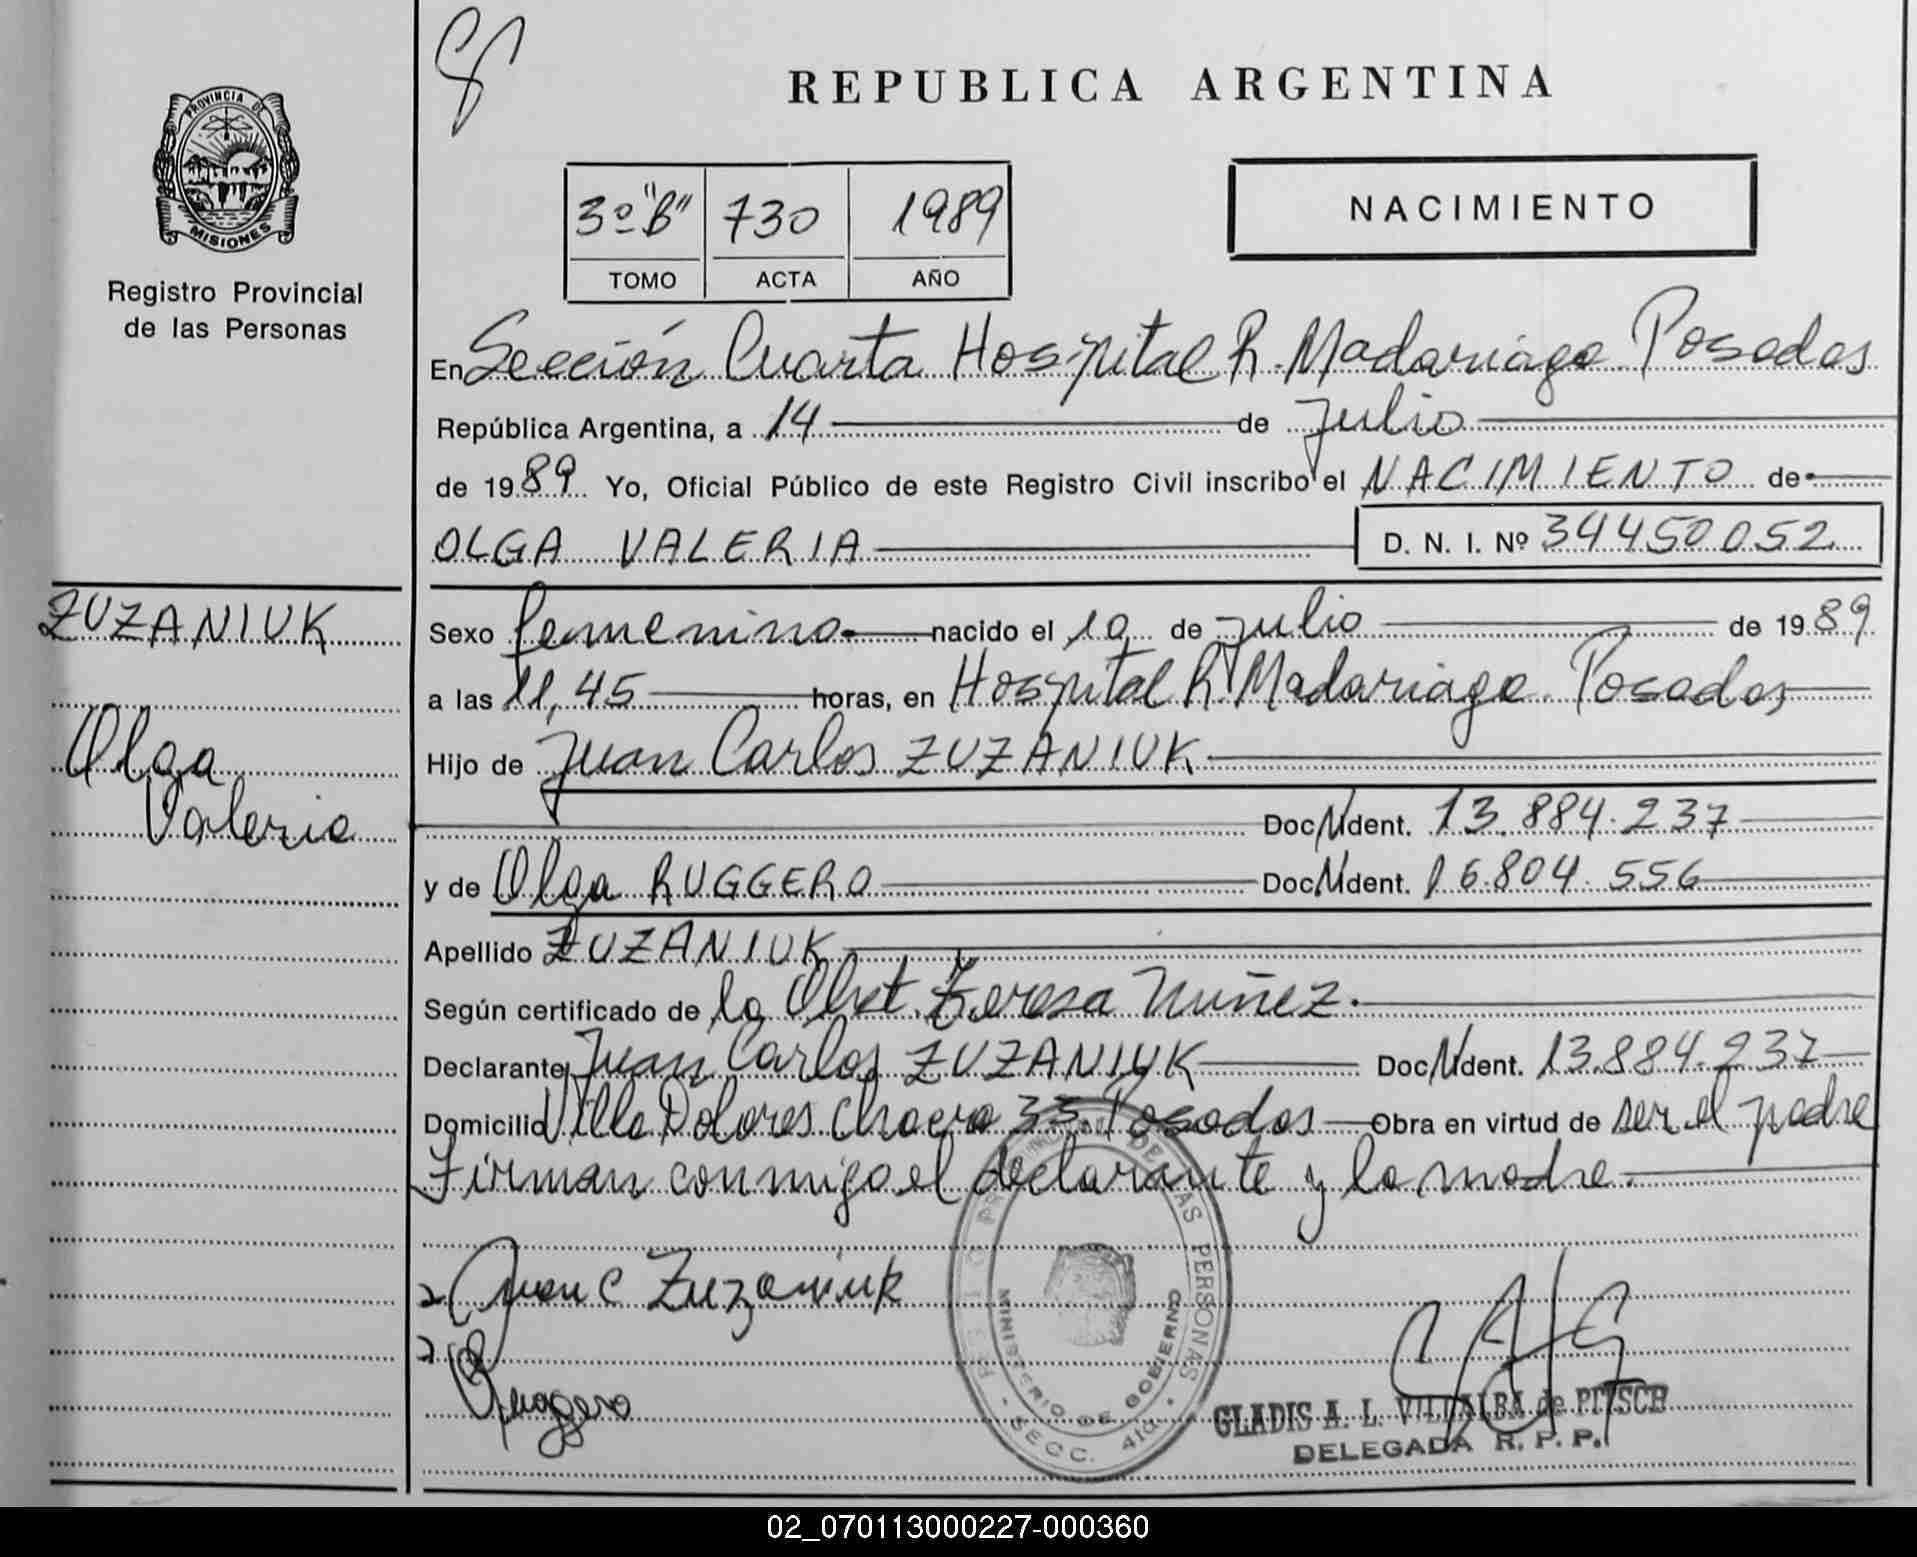 REPUBLICA ARGENTINA
PROVINCIA DE
MISIONES
Registro Provincial
de las Personas
3º "B" 730 1989
TOMO ACTA AÑO
NACIMIENTO
En Sección Cuarta Hospital R. Madariaga Posadas
República Argentina, a 14 de Julio
de 1989 Yo, Oficial Público de este Registro Civil inscribo el NACIMIENTO de
OLGA VALERIA D. N. I. Nº 34450052
ZUZANIUK
Olga
Valeria
Sexo femenino nacido el 10 de julio de 1989
a las 11,45 horas, en Hospital R. Madariaga Posadas
Hijo de Juan Carlos ZUZANIUK
Doc Ident. 13.884.237
y de Olga RUGGERO Doc Ident. 16.804.556
Apellido ZUZANIUK
Según certificado de la Obst. Teresa Nuñez.
Declarante Juan Carlos ZUZANIUK Doc Ident. 13.884.237
Domicilio Villa Dolores Chacra 33 Posadas Obra en virtud de ser el padre
Firman conmigo el declarante y la madre.
Juan C Zuzaniuk
Ruggero
PROVINCIAL DE LAS PERSONAS
MINISTERIO DE GOBIERNO
SECC. 4ta.
GLADIS A. L. VILLALBA de PITSCH
DELEGADA R. P. P.
02_070113000227-000360